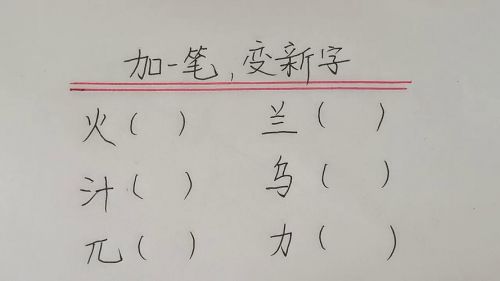 加一笔,变新字
火( ) 兰( )
汁( ) 乌( )
兀( ) 力( )